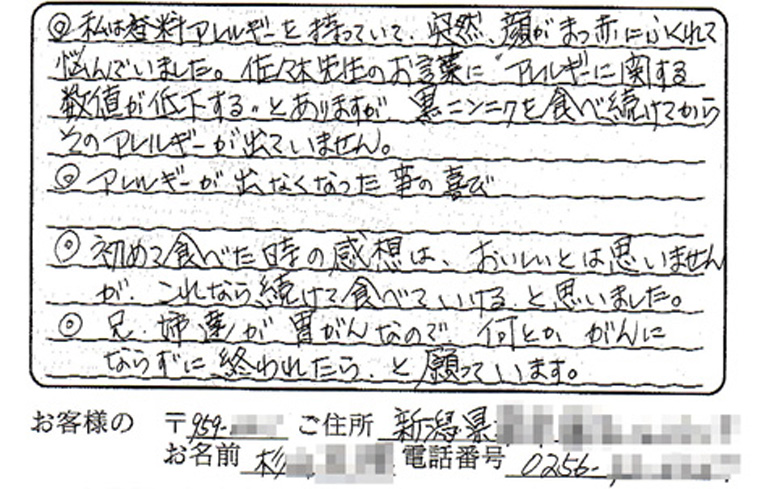 ◎私は香料アレルギーを持っていて、突然、顔がまっ赤にふくれて
悩んでいました。佐々木先生のお言葉に"アレルギーに関する
数値が低下する"とありますが 黒ニンニクを食べ続けてから
そのアレルギーが出ていません。
◎アレルギーが出なくなった事の喜び
◎初めて食べた時の感想は、おいしいとは思いません
が、これなら続けて食べていける、と思いました。
◎兄、姉達が胃がんなので、何とか、がんに
ならずに終われたら、と願っています。
お客様の 〒959- ご住所 新潟県
お名前 杉 電話番号 0256-